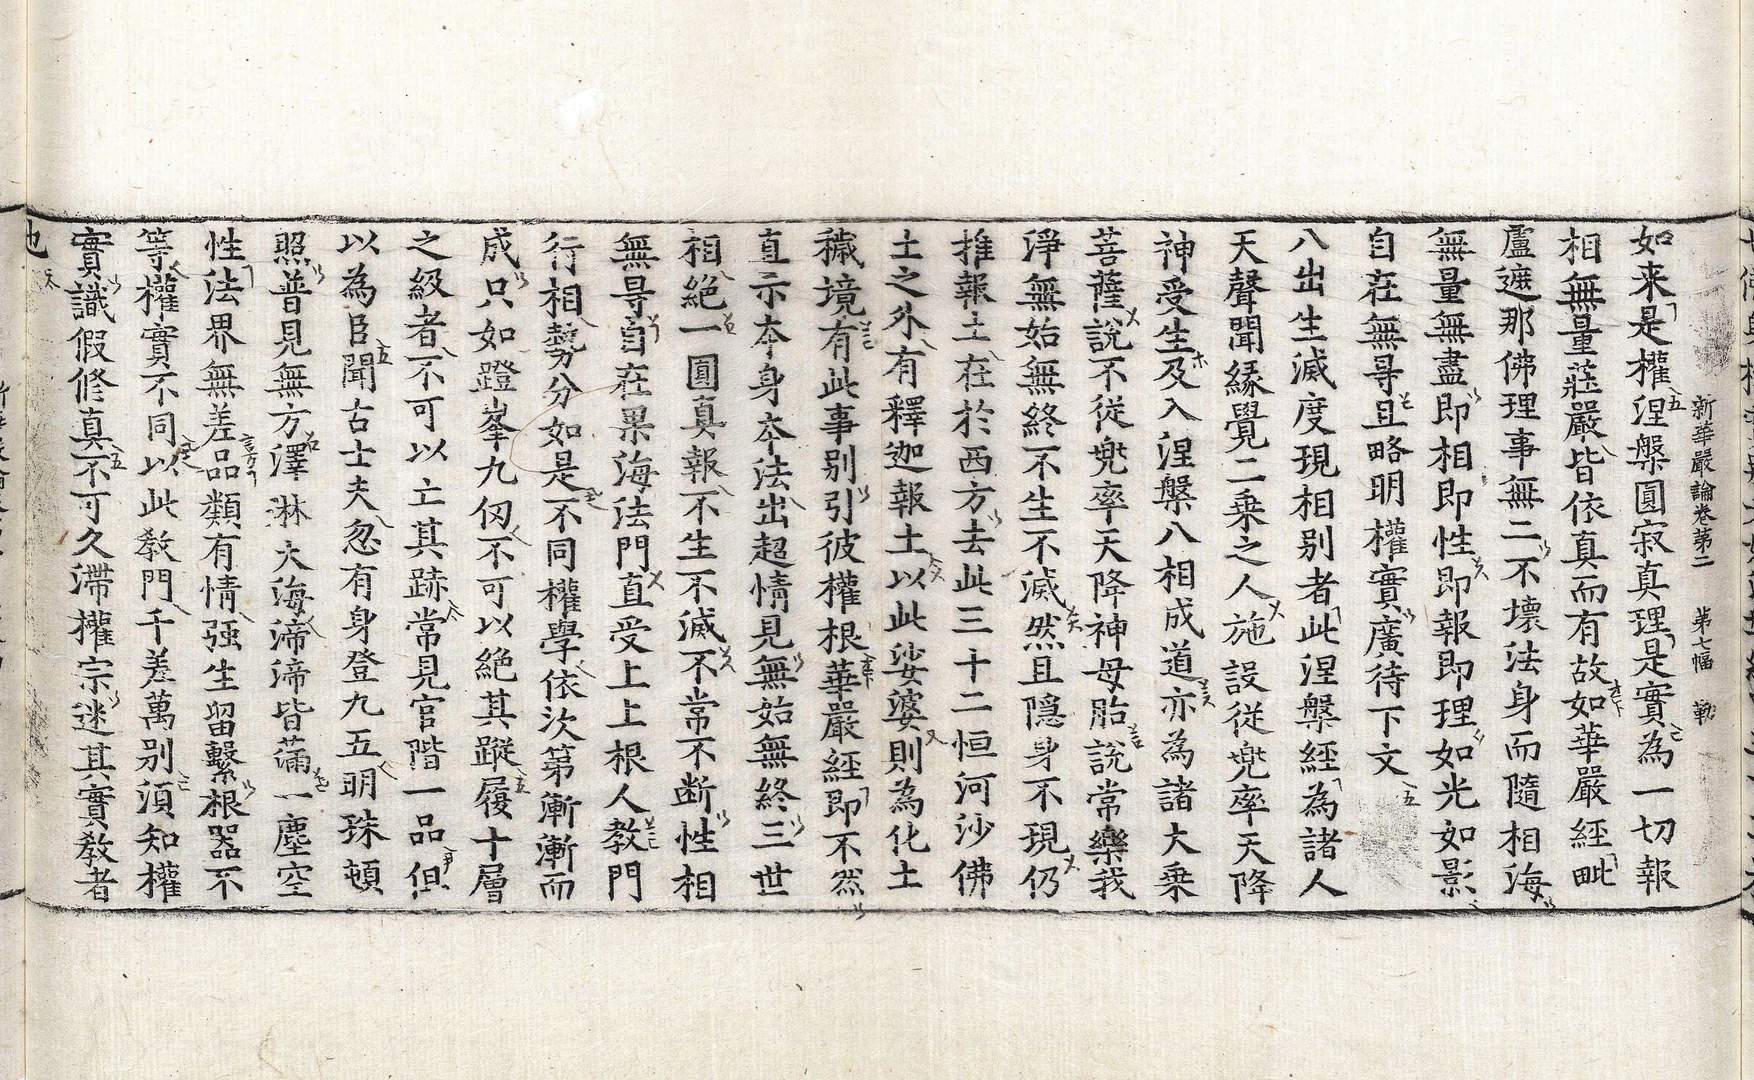 新華嚴論卷第二　第七幅　勒
如来是權涅槃圓寂真理是實為一切報
相無量莊嚴皆依真而有故如華嚴經毗
盧遮那佛理事無二不壞法身而隨相海
無量無盡即相即性即報即理如光如影
自在無㝵且略明權實廣待下文
八出生滅度現相別者此涅槃經為諸人
天聲聞緣覺二乗之人施設従兠率天降
神受生及入涅槃八相成道亦為諸大乗
菩薩說不従兠率天降神母胎說常樂我
淨無始無終不生不滅然且隱身不現仍
推報土在於西方去此三十二恒河沙佛
土之外有釋迦報土以此娑婆則為化土
穢境有此事别引彼權根華嚴經即不然
直示夲身夲法出超情見無始無終三世
相絕一圓真報不生不滅不常不断性相
無㝵自在果海法門直受上上根人教門
行相勢分如是不同權學依次第漸漸而
成只如蹬峯九仞不可以絕其蹤履十層
之級者不可以立其跡常見官階一品但
以為臣聞古士夫忽有身登九五明珠頓
照普見無方澤淋大海渧渧皆滿一塵空
性法界無差品類有情强生留繫根器不
等權實不同以此教門千差萬别湏知權
實識假修真不可久滯權宗迷其實教者
也